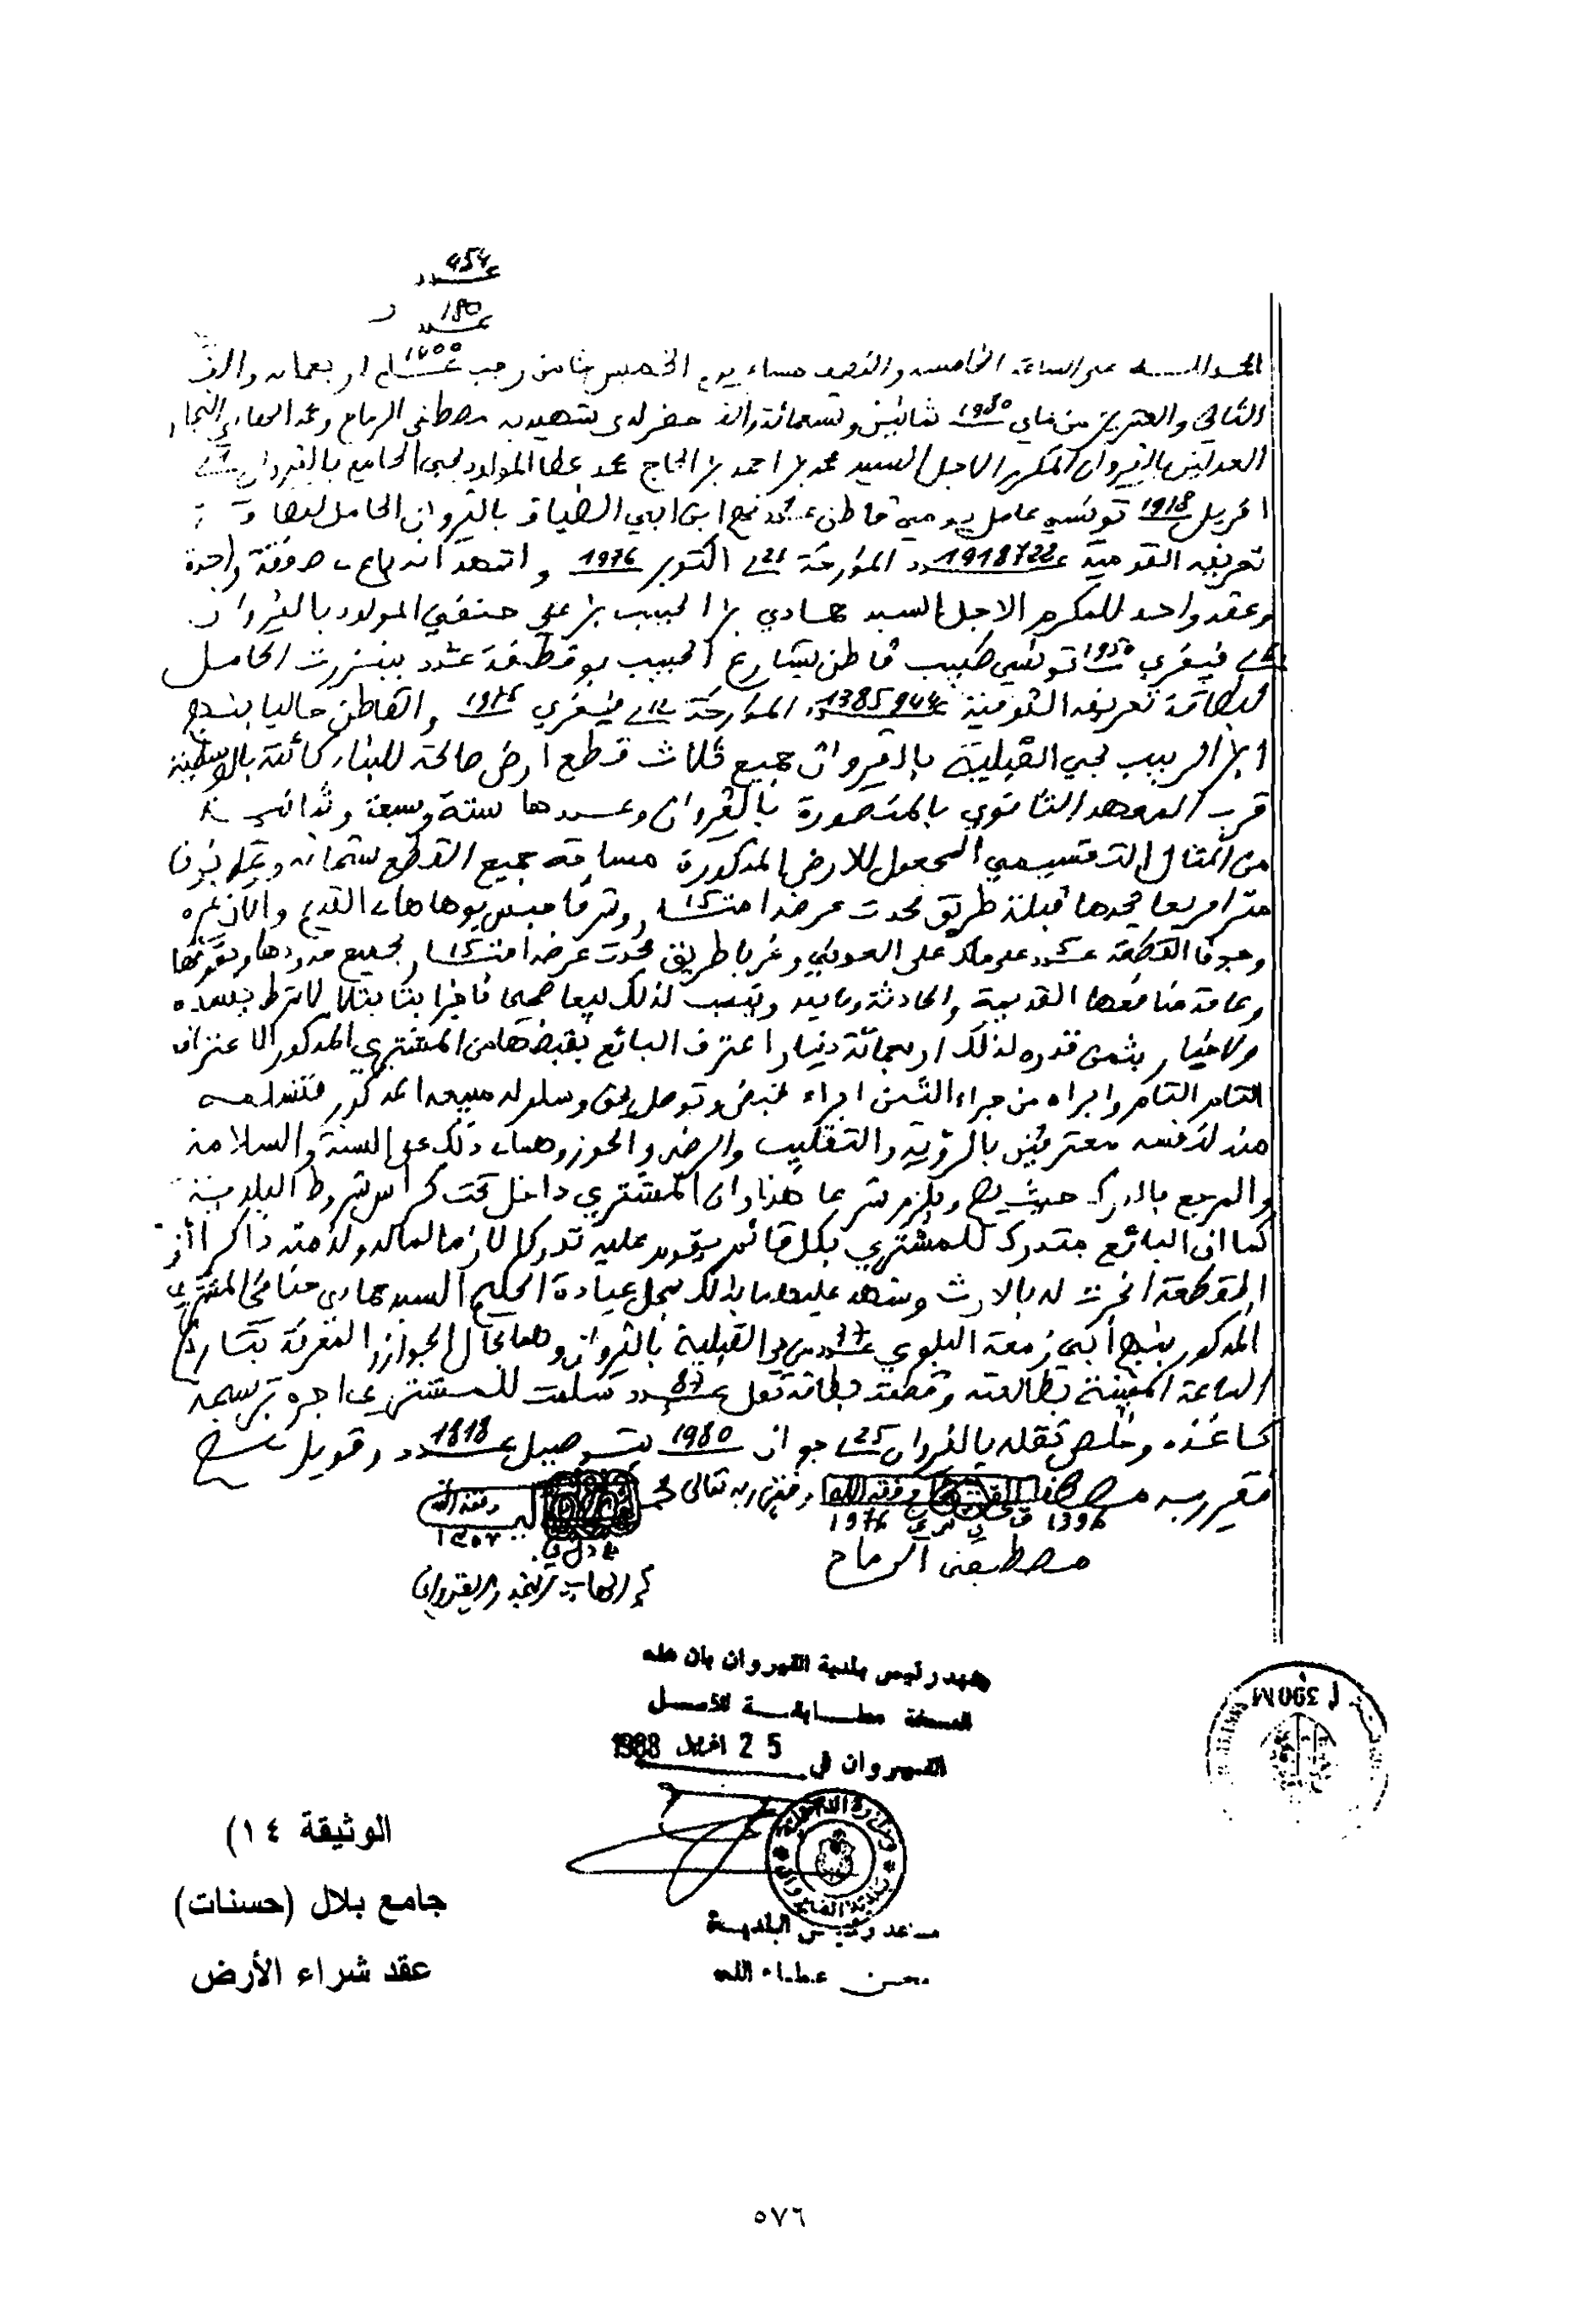 عدد 454
عدد 180
الحمد لله على الساعة الخامسة والنصف مساء يوم الخميس ثامن رجب عام 1400 اربعمائة والف
الثاني والعشرين من ماي 1980 ثمانين وتسعمائة والف حضر لدى شهيديه مصطفى الرماح ومحمد النجار
العدلين بالقيروان المكرم الاجل السيد محمد بن احمد بن الحاج محمد عطا المولود بحي الجامع بالقيروان
افريل 1918 تونسي عامل يومي قاطن نهج ابن ابي الضياف بالقيروان الحامل
تعريفه القومية عدد 1918722 المؤرخة في 21 اكتوبر 1976 واشهد انه باع صفقة واحدة
وعقد واحد للمكرم الاجل السيد حمادي بن الحبيب بن علي حنفي المولود بالقيروان
في فيفري 1950 تونسي طبيب قاطن بشارع الحبيب بوقطفة عدد ببنزرت الحامل
لبطاقة تعريفه القومية عدد 1385944 المؤرخة في فيفري والقاطن حاليا بنهج
الربيب بحي القبلية بالقيروان جميع ثلاث قطع ارض صالحة للبناء كائنة
قرب المعهد الثانوي بالمنصورة بالقيروان وعددها ستة وسبعة وثمانية
من المثال التقسيمي المجعول للارض المذكورة مساحة جميع القطع ستمائة
مترا مربعا يحدها قبلة طريق يحدث عرضه امتار 15 وشرقا حبس بوهاها القديم والآن غيره
وجوفا القطعة عدد على ملك علي العوني وغربا طريق يحدث عرضه امتار 15 بجميع حدودها وحقوقها
وعامة منافعها القديمة والحادثة بيعا صحيحا ناجزا بتا بتلا لا شرط يفسده
ولا خيار بثمن قدره لذلك اربعمائة دينار اعترف البائع بقبضها من المشتري المذكور الاعتراف
التام وابراه من جراء الثمن ابراء قبض وتوصل بحق وسلم له مبيعه المذكور فتسلمه
منه لنفسه معترفين بالرؤية والتقليب والرضى والحوز وهما في ذلك على السنة والسلامة
والمرجع بالدرك حيث يصح ويلزم شرعا هذا وان المشتري داخل تحت كراس شروط البلدية
كما ان البائع متدرك للمشتري بكل قائم يقوم عليه تدركا لازما لماله ولذمته ذاكرا ان
القطعة انجرت له بالارث وشهد عليهما بذلك بمحل عيادة الحكيم السيد حمادي حنفي المشتري
المذكور بنهج أبي زمعة البلوي عدد 37 من حي القبلية بالقيروان وهما بحال الجواز والمعرفة بتاريخ
الساعة المبينة بطالعته وقطعت بطاقة نقل عدد 87 سلمت للمشتري اجره ترسيمه
كاغذه وخلص نقله بالقيروان في 25 جوان 1980 بتوصيل عدد 1818 وقوبل فصح
فقير ربه مصطفى وفقه الله وفقير ربه تعالى محمد وفقه الله
1396 1976
مصطفى الرماح
شهد رئيس بلدية القيروان بان هذه
النسخة مطابقة للأصل
القيروان في 25 افريل 1988
وزارة الداخلية بلدية القيروان
مساعد رئيس البلدية
محسن عطاء الله
الوثيقة ١٤)
جامع بلال (حسنات)
عقد شراء الأرض
٥٧٦